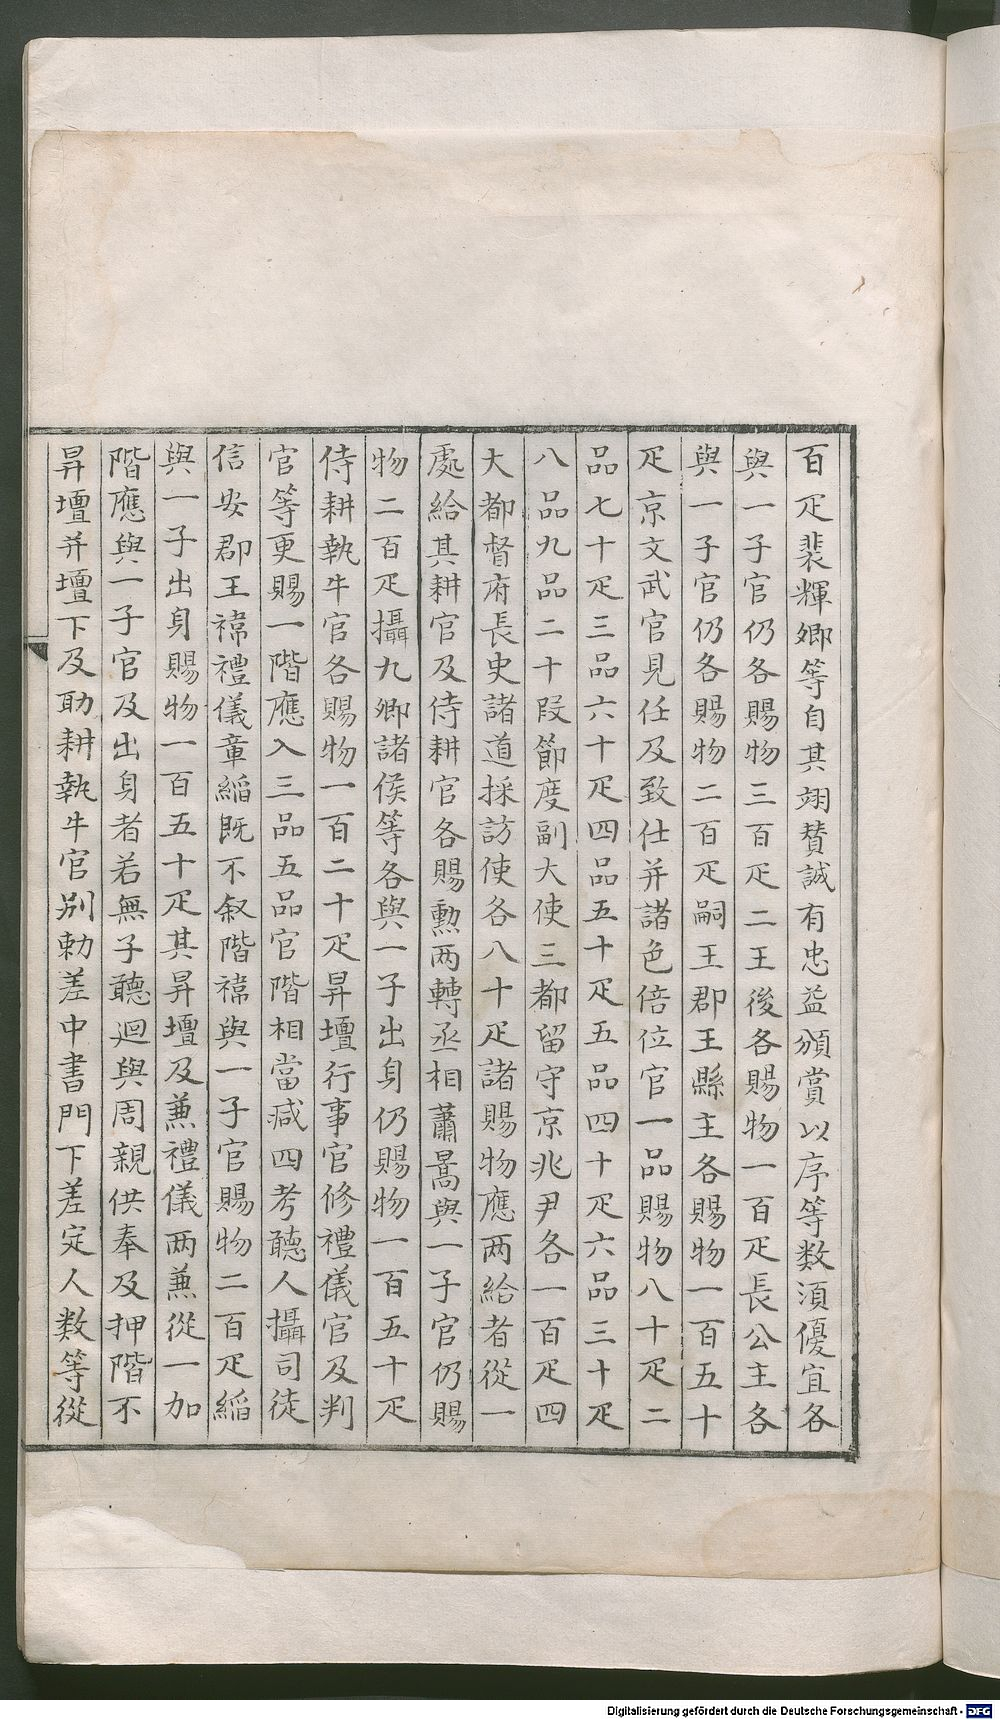 百疋裴輝卿等自其翊賛誠有忠益頒賞以序等数湏優宜各
與一子官仍各賜物三百疋二王後各賜物一百疋長公主各
與一子官仍各賜物二百疋嗣王郡王縣主各賜物一百五十
疋京文武官見任及致仕并諸色倍位官一品賜物八十疋二
品七十疋三品六十疋四品五十疋五品四十疋六品三十疋
八品九品二十叚節度副大使三都留守京兆尹各一百疋四
大都督府長史諸道採訪使各八十疋諸賜物應两給者從一
處給其耕官及侍耕官各賜勲两轉丞相蕭暠與一子官仍賜
物二百疋攝九卿諸侯等各與一子出身仍賜物一百五十疋
侍耕執牛官各賜物一百二十疋昇壇行事官修禮儀官及判
官等更賜一階應入三品五品官階相當减四考聽人攝司徒
信安郡王褘禮儀韋縚既不叙階褘與一子官賜物二百疋縚
與一子出身賜物一百五十疋其昇壇及兼禮儀两兼從一加
階應與一子官及出身者若無子聽迴與周親供奉及押階不
昇壇并壇下及助耕執牛官别勅差中書門下差定人数等從
Digitalisierung gefördert durch die Deutsche Forschungsgemeinschaft - DFG